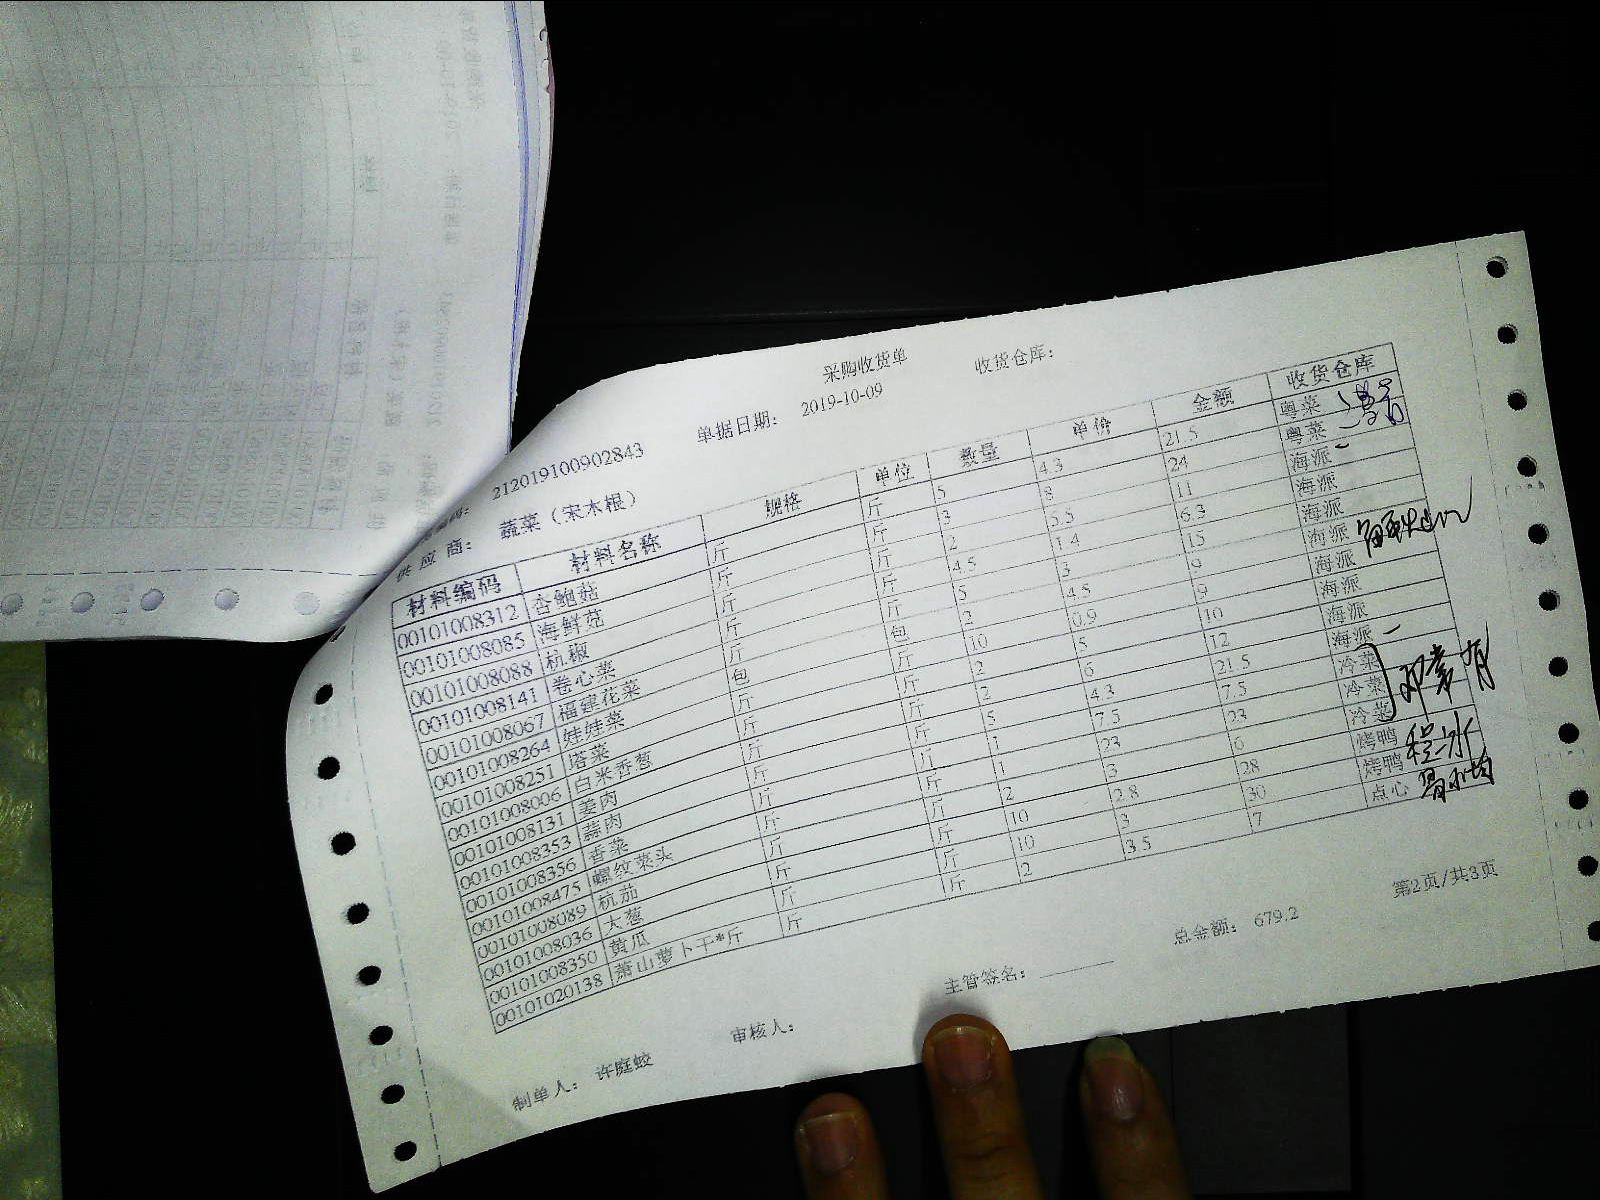 采购收货单
收货仓库：
212019100902843 单据日期： 2019-10-09
供应商： 蔬菜（宋木根）
材料编码 材料名称 规格 单位 数量 单价 金额 收货仓库
00101008312 杏鲍菇 斤 斤 5 4.3 21.5 粤菜
00101008085 海鲜菇 斤 斤 3 8 24 粤菜
00101008088 杭椒 斤 斤 2 5.5 11 海派
00101008141 卷心菜 斤 斤 4.5 1.4 6.3 海派
00101008067 福建花菜 斤 斤 5 3 15 海派
00101008264 娃娃菜 包 包 2 4.5 9 海派
00101008251 塔菜 斤 斤 10 0.9 9 海派
00101008006 白米香葱 斤 斤 2 5 10 海派
00101008131 姜肉 斤 斤 2 6 12 海派
00101008353 蒜肉 斤 斤 5 4.3 21.5 海派
00101008356 香菜 斤 斤 1 7.5 7.5 冷菜
00101008475 螺纹菜头 斤 斤 1 23 23 冷菜
00101008089 杭茄 斤 斤 2 3 6 冷菜
00101008036 大葱 斤 斤 10 2.8 28 烤鸭
00101008350 黄瓜 斤 斤 10 3 30 烤鸭
00101020138 萧山萝卜干*斤 斤 斤 2 3.5 7 点心
总金额： 679.2 第2页/共3页
制单人： 许庭蛟 审核人： 主管签名：